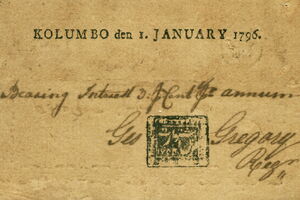 KOLUMBO den 1. JANUARY 1796.
Bearing Interest 3. P Cent Pr annum
Geo Gregory
Regr